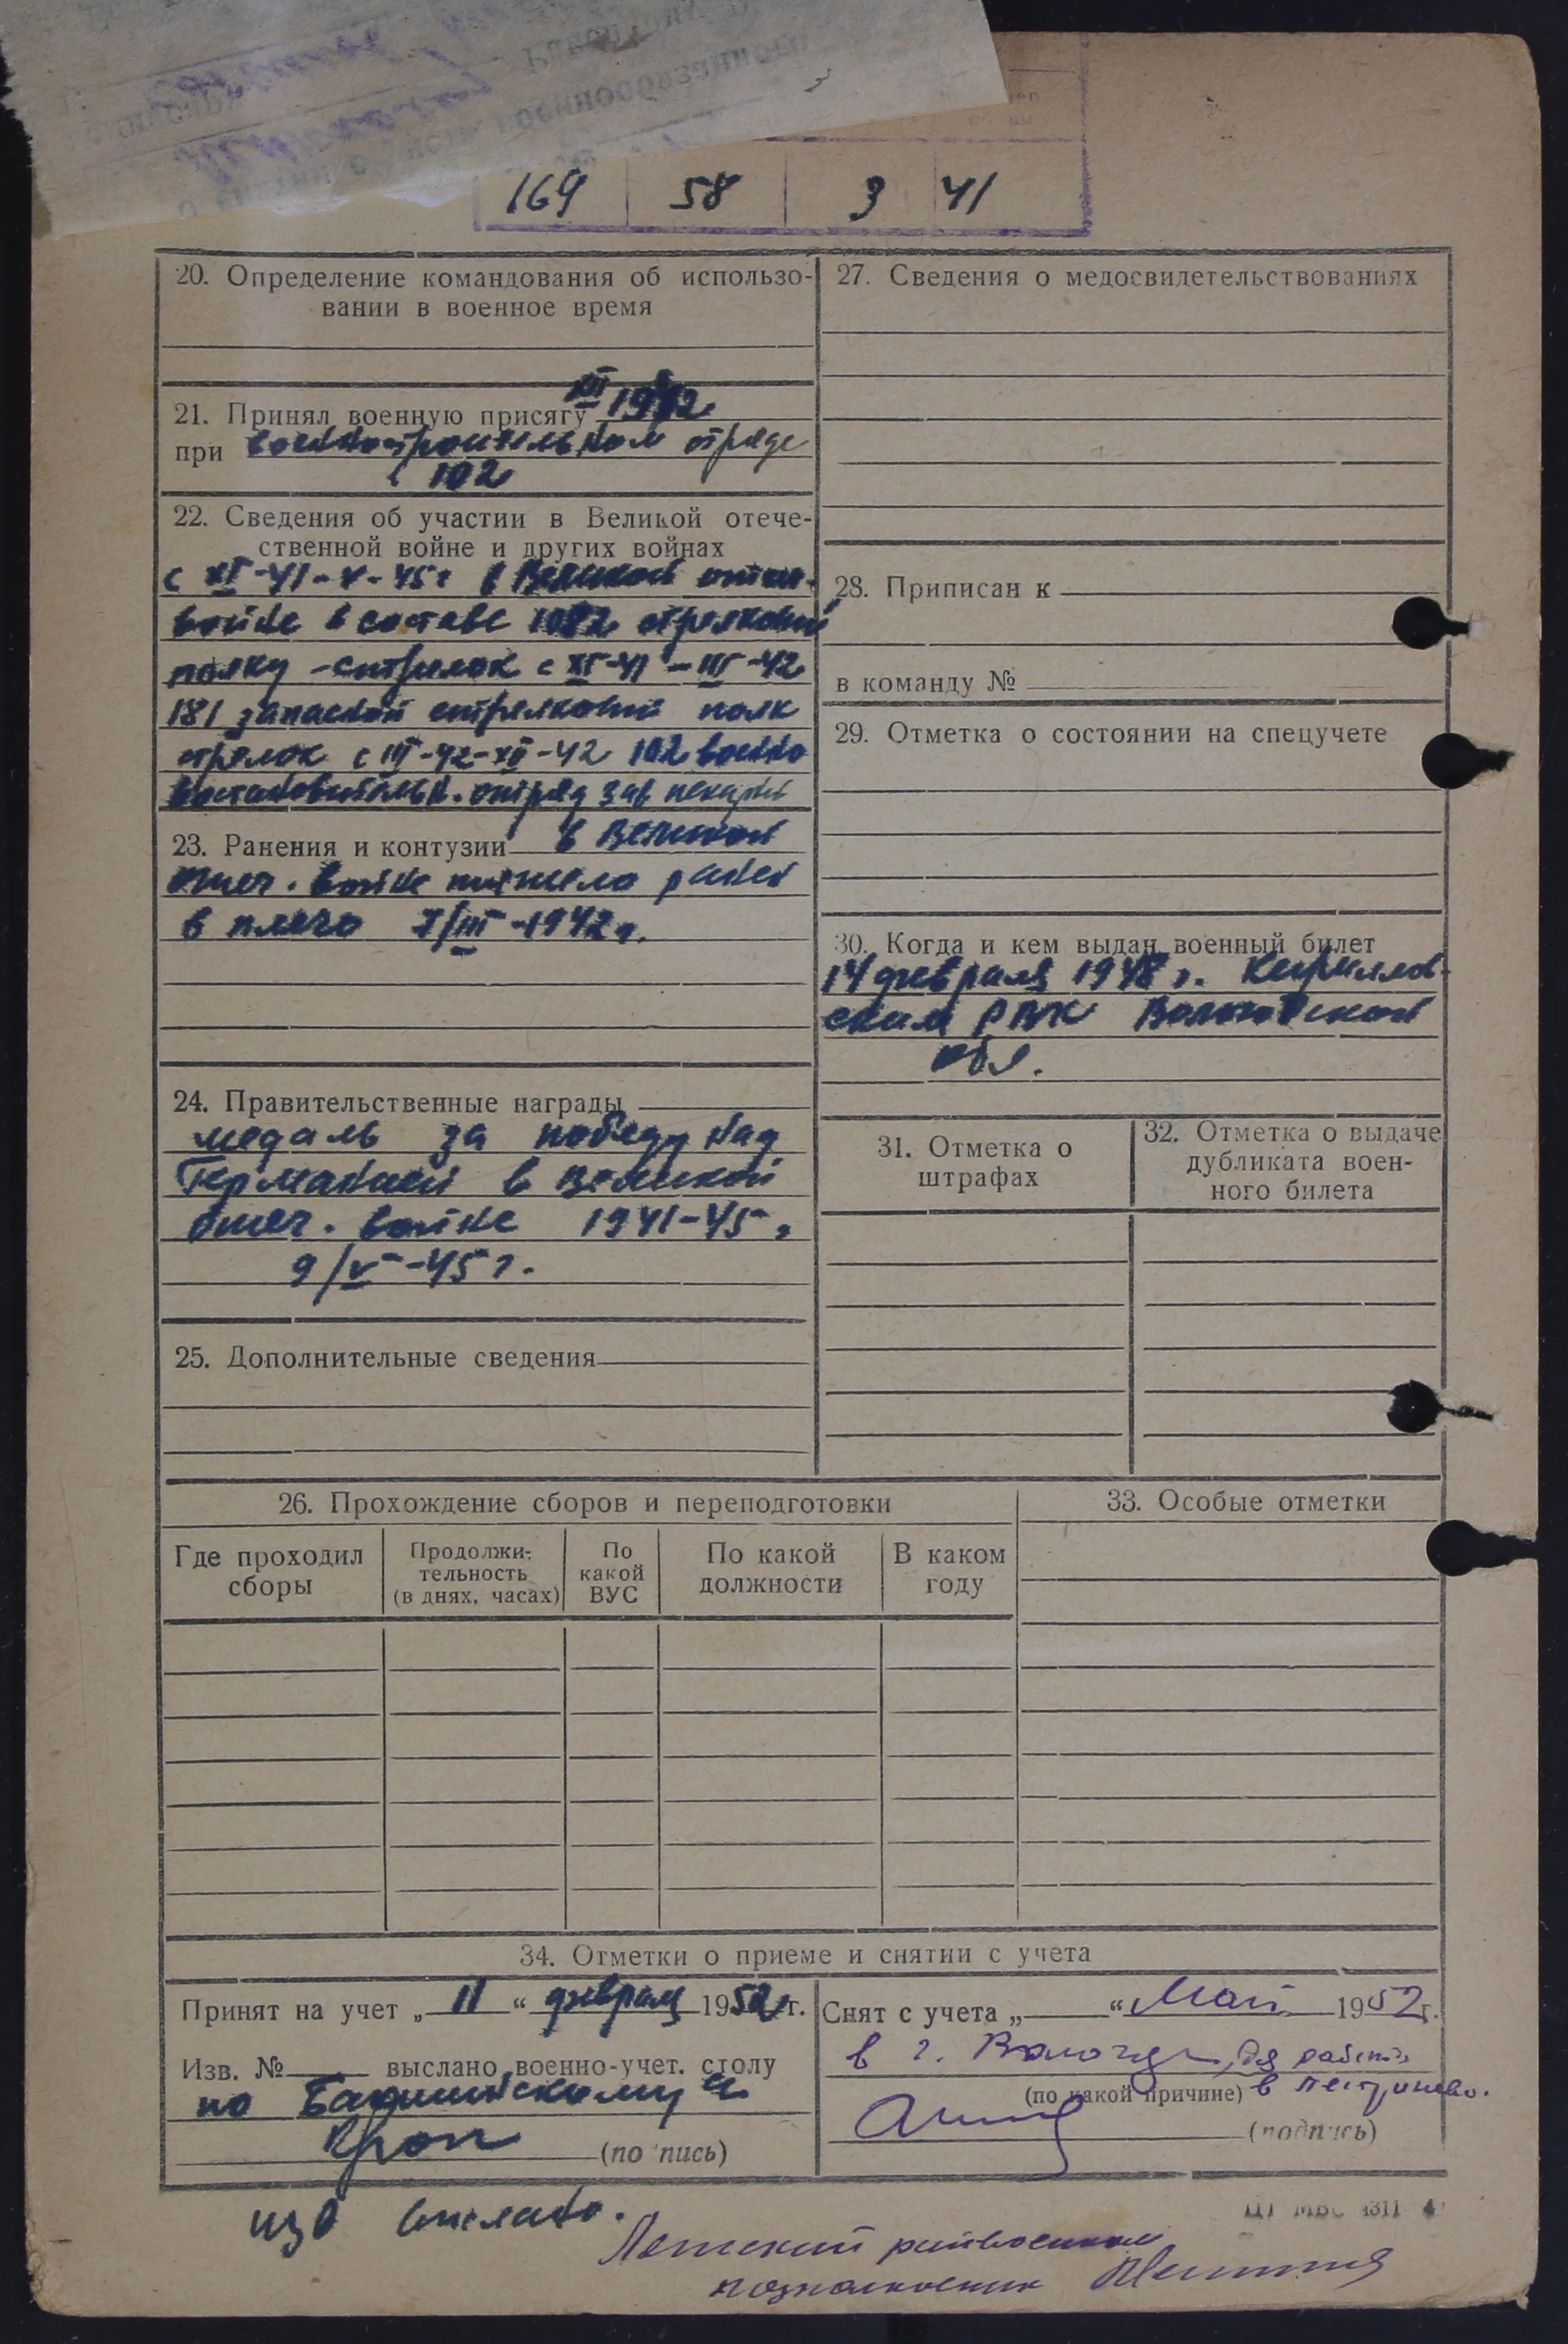 169 58 3 41
20. Определение командования об использо-
вании в военное время
21. Принял военную присягу XII 1942
при военностроительном отряде
102
22. Сведения об участии в Великой отече-
ственной войне и других войнах
с XI-41-V-45г в Великой отеч.
войне в составе 1082 стрелковый
полку - стрелок с XI-41-III-42
181 запасной стрелковый полк
стрелок с III-42-XII-42 102 военно
востановительн. отряд зав пекарни
23. Ранения и контузии в Великой
отеч. войне тяжело ранен
в плечо I/III-1942г.
24. Правительственные награды
медаль за победу над
Германией в Великой
отеч. войне 1941-45г
9/V-45г.
25. Дополнительные сведения
27. Сведения о медосвидетельствованиях
28. Приписан к
в команду №
29. Отметка о состоянии на спецучете
30. Когда и кем выдан военный билет
14 февраля 1948г. Кириллов-
ским РВК Вологодской
обл.
31. Отметка о
штрафах
32. Отметка о выдаче
дубликата воен-
ного билета
26. Прохождение сборов и переподготовки
Где проходил
сборы
Продолжи-
тельность
(в днях, часах)
По
какой
ВУС
По какой
должности
В каком
году
33. Особые отметки
34. Отметки о приеме и снятии с учета
Принят на учет „ 11 “ февраля 1952г.
Изв. № выслано военно-учет. столу
по
(подпись)
Снят с учета „ “ Май 1952г.
в г. Вологду для работы
(по какой причине) в
(подпись)
изв выслано.
райвоенком
подполковник